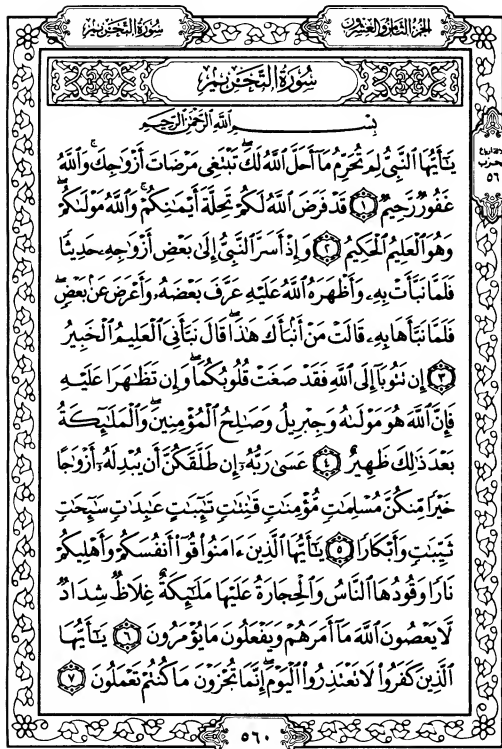 سُورَةُ التَّحْرِيمِ
الجُزْءُ الثَّامِنُ وَالعِشْرُونَ
سُورَةُ التَّحْرِيمِ
بِسْمِ اللَّهِ الرَّحْمَٰنِ الرَّحِيمِ
يَٰٓأَيُّهَا ٱلنَّبِىُّ لِمَ تُحَرِّمُ مَآ أَحَلَّ ٱللَّهُ لَكَ ۖ تَبْتَغِى مَرْضَاتَ أَزْوَٰجِكَ ۚ وَٱللَّهُ
غَفُورٌ رَّحِيمٌ ١ قَدْ فَرَضَ ٱللَّهُ لَكُمْ تَحِلَّةَ أَيْمَٰنِكُمْ ۚ وَٱللَّهُ مَوْلَىٰكُمْ ۖ
وَهُوَ ٱلْعَلِيمُ ٱلْحَكِيمُ ٢ وَإِذْ أَسَرَّ ٱلنَّبِىُّ إِلَىٰ بَعْضِ أَزْوَٰجِهِۦ حَدِيثًا
فَلَمَّا نَبَّأَتْ بِهِۦ وَأَظْهَرَهُ ٱللَّهُ عَلَيْهِ عَرَّفَ بَعْضَهُۥ وَأَعْرَضَ عَنۢ بَعْضٍ ۖ
فَلَمَّا نَبَّأَهَا بِهِۦ قَالَتْ مَنْ أَنۢبَأَكَ هَٰذَا ۖ قَالَ نَبَّأَنِىَ ٱلْعَلِيمُ ٱلْخَبِيرُ
٣ إِن تَتُوبَآ إِلَى ٱللَّهِ فَقَدْ صَغَتْ قُلُوبُكُمَا ۖ وَإِن تَظَٰهَرَا عَلَيْهِ
فَإِنَّ ٱللَّهَ هُوَ مَوْلَىٰهُ وَجِبْرِيلُ وَصَٰلِحُ ٱلْمُؤْمِنِينَ ۖ وَٱلْمَلَٰٓئِكَةُ
بَعْدَ ذَٰلِكَ ظَهِيرٌ ٤ عَسَىٰ رَبُّهُۥٓ إِن طَلَّقَكُنَّ أَن يُبْدِلَهُۥٓ أَزْوَٰجًا
خَيْرًا مِّنكُنَّ مُسْلِمَٰتٍ مُّؤْمِنَٰتٍ قَٰنِتَٰتٍ تَٰٓئِبَٰتٍ عَٰبِدَٰتٍ سَٰٓئِحَٰتٍ
ثَيِّبَٰتٍ وَأَبْكَارًا ٥ يَٰٓأَيُّهَا ٱلَّذِينَ ءَامَنُوا۟ قُوٓا۟ أَنفُسَكُمْ وَأَهْلِيكُمْ
نَارًا وَقُودُهَا ٱلنَّاسُ وَٱلْحِجَارَةُ عَلَيْهَا مَلَٰٓئِكَةٌ غِلَاظٌ شِدَادٌ
لَّا يَعْصُونَ ٱللَّهَ مَآ أَمَرَهُمْ وَيَفْعَلُونَ مَا يُؤْمَرُونَ ٦ يَٰٓأَيُّهَا
ٱلَّذِينَ كَفَرُوا۟ لَا تَعْتَذِرُوا۟ ٱلْيَوْمَ ۖ إِنَّمَا تُجْزَوْنَ مَا كُنتُمْ تَعْمَلُونَ ٧
٥٦
٥٦٠